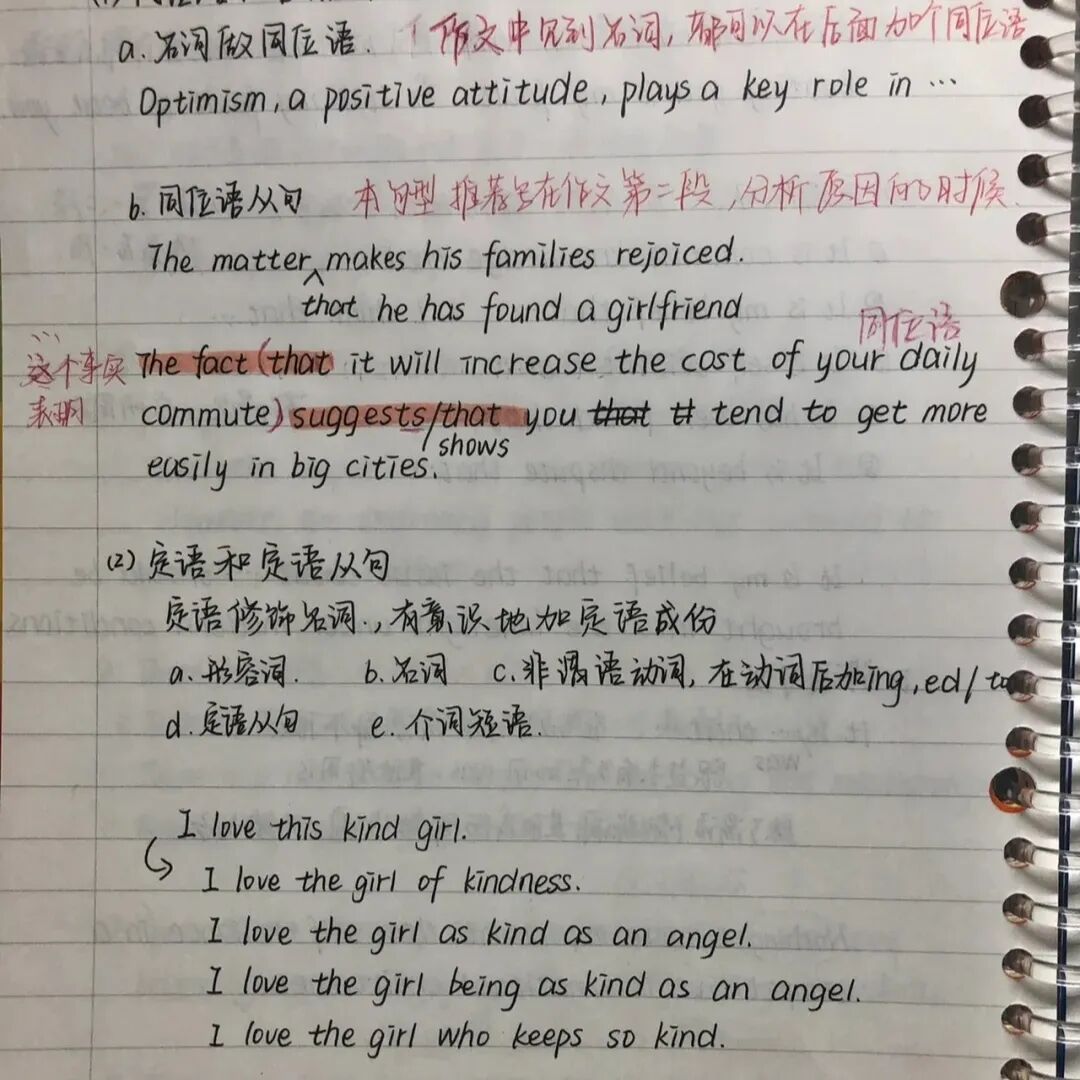 a. 名词做同位语. (作文中见到名词, 都可以在后面加个同位语
Optimism, a positive attitude, plays a key role in …
b. 同位语从句 本句型推荐写在作文第二段, 分析原因的时候.
The matter makes his families rejoiced.
that he has found a girlfriend
同位语
这个事实 The fact (that it will increase the cost of your daily
表明 commute) suggests/that you that tend to get more
shows
easily in big cities.
(2) 定语和定语从句
定语修饰名词., 有意识地加定语成份
a. 形容词. b. 名词 c. 非谓语动词, 在动词后加ing, ed/to
d. 定语从句 e. 介词短语.
I love this kind girl.
I love the girl of kindness.
I love the girl as kind as an angel.
I love the girl being as kind as an angel.
I love the girl who keeps so kind.